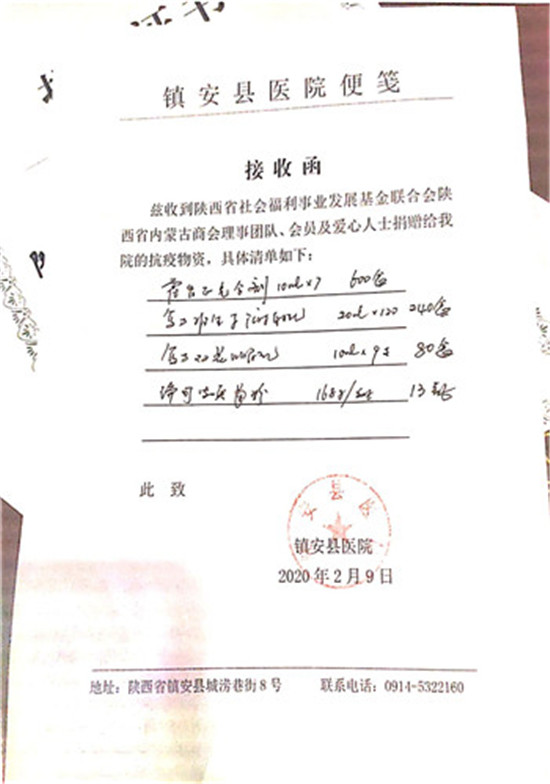 镇安县医院便笺
接收函
兹收到陕西省社会福利事业发展基金联合会陕
西省内蒙古商会理事团队、会员及爱心人士捐赠给我
院的抗疫物资，具体清单如下：
10ml×7 600盒
20ml×120 240盒
10ml×9支 80盒
168 13
此致
镇安县医院
2020年2月9日
地址：陕西省镇安县城涝巷街8号 联系电话：0914-5322160